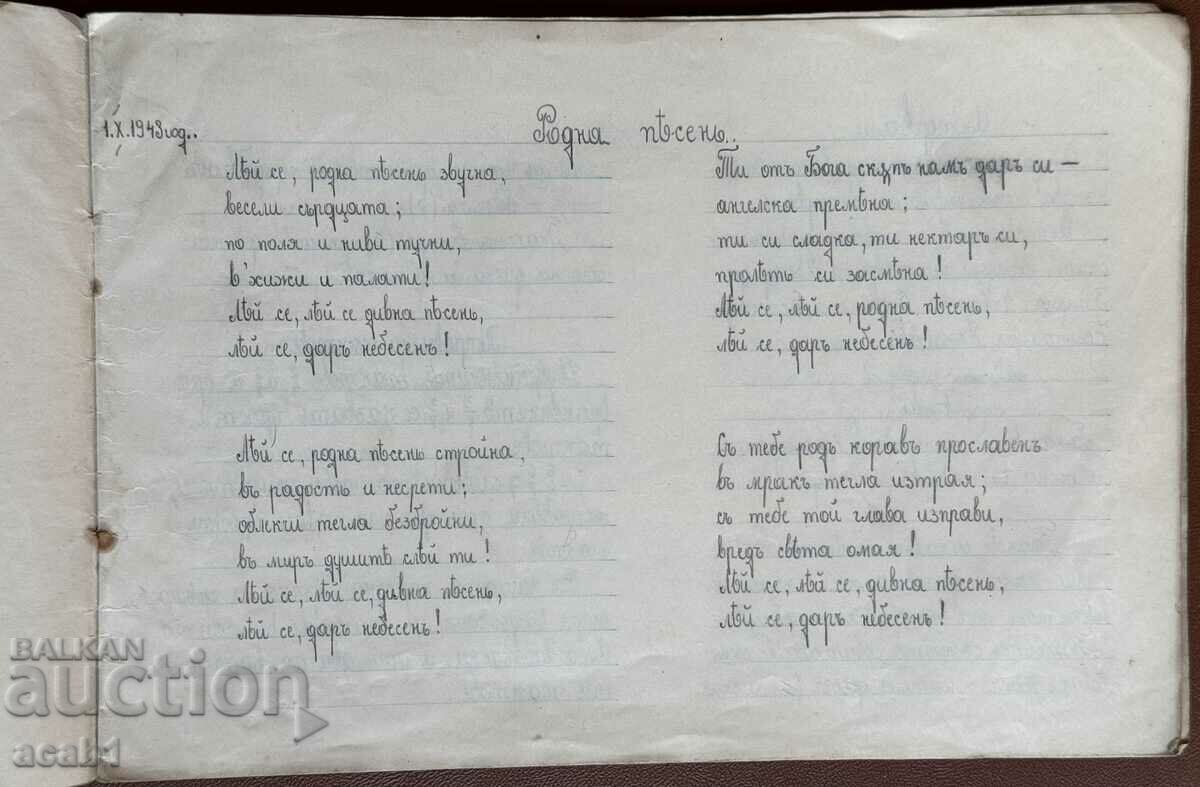 1.X.1943 год..
Родна пѣсень..
Лѣй се, родна пѣсень звучна,
весели сърдцата;
по поля и ниви тучни,
в'хижи и палати!
Лѣй се, лѣй се дивна пѣсень,
лѣй се, даръ небесенъ!
Лѣй се, родна пѣсень стройна,
въ радость и несрети;
облекчи тегла безбройни,
въ миръ душитѣ слѣй ти!
Лѣй се, лѣй се, дивна пѣсень,
лѣй се, даръ небесенъ!
Ти отъ Бога скъпъ намъ даръ си —
ангелска премѣна;
ти си сладка, ти нектаръ си,
пролѣть си засмѣна!
Лѣй се, лѣй се, родна пѣсень,
лѣй се, даръ небесенъ!
Съ тебе родъ коравъ прославенъ
въ мракъ тегла изтрая;
съ тебе той глава изправи,
вредъ свѣта омая!
Лѣй се, лѣй се, дивна пѣсень,
лѣй се, даръ небесенъ!
BALKAN
auction
acab1